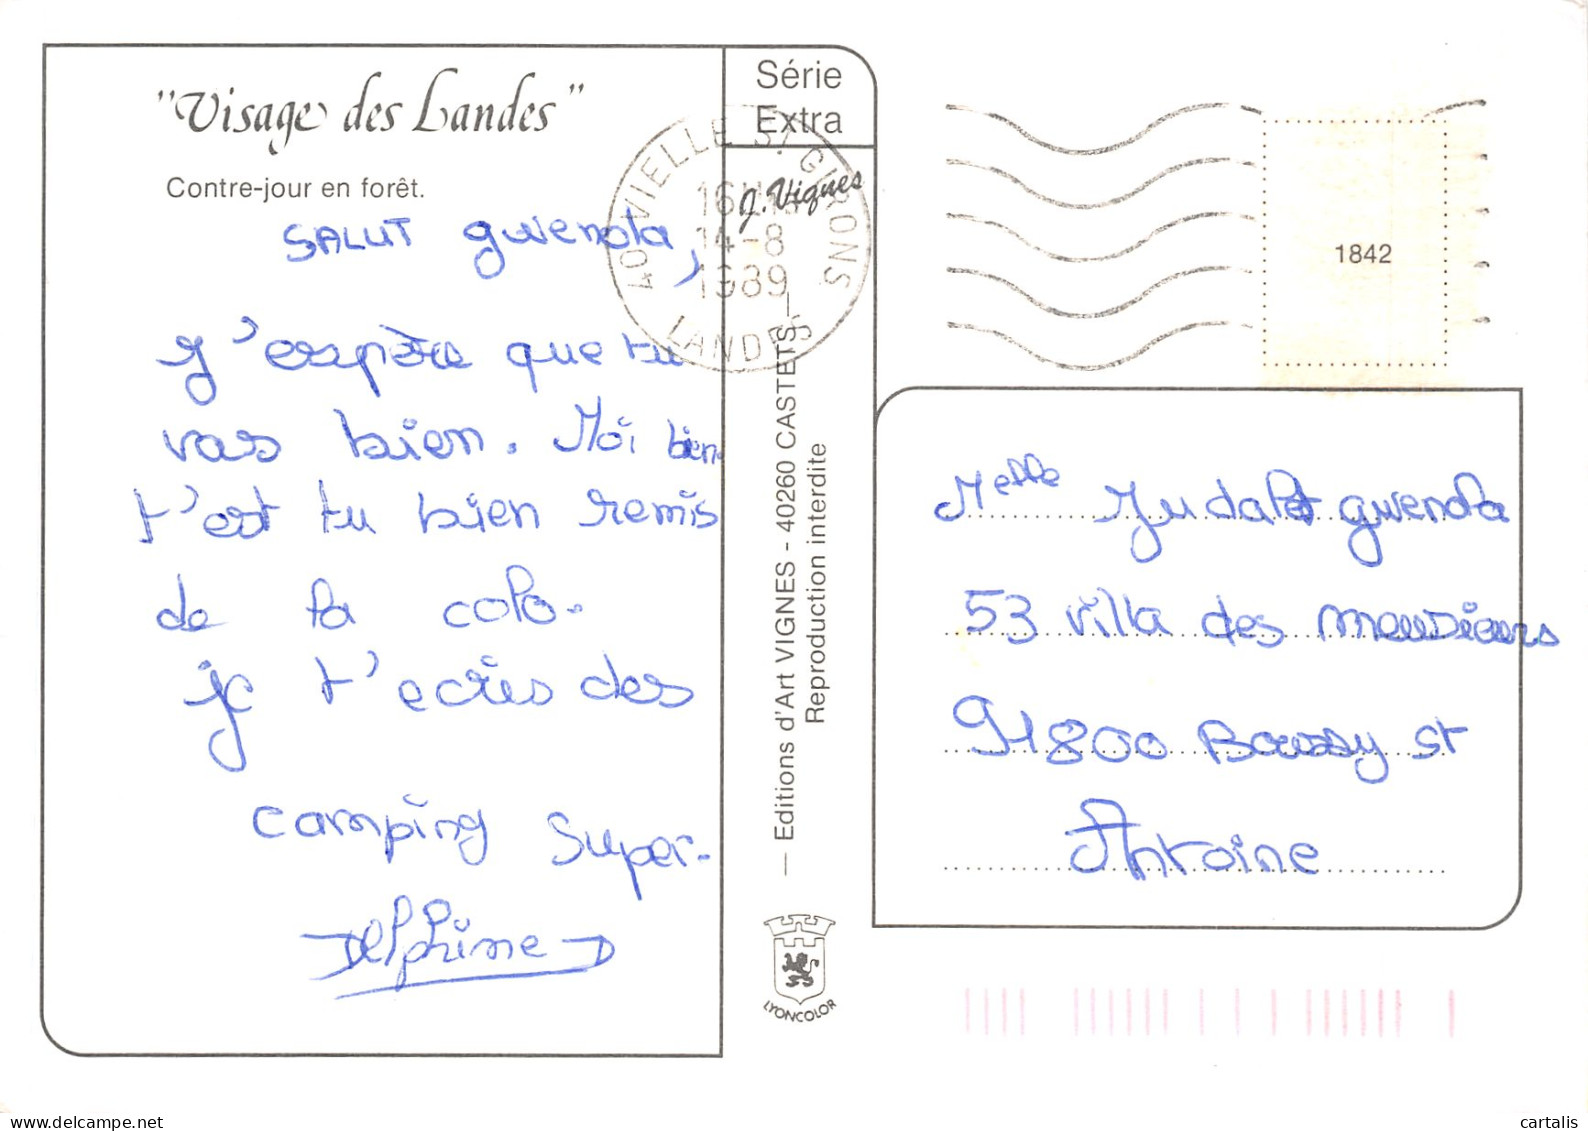 "Visage des Landes"
Contre-jour en forêt.
SALUT gwenola,
J'esspère que tu
vas bien. Moi bien.
t'est tu bien remis
de la colo.
je t'ecris des
camping super.
Delphine
Série
Extra
J. Vignes
40 VIELLE ST GIRONS
16H15
14-8
1989
LANDES
— Editions d'Art VIGNES - 40260 CASTETS —
Reproduction interdite
LYONCOLOR
1842
Melle Judalet gwenola
53 villa des meusiers
91800 Boussy st
Antoine
cartalis
delcampe.net